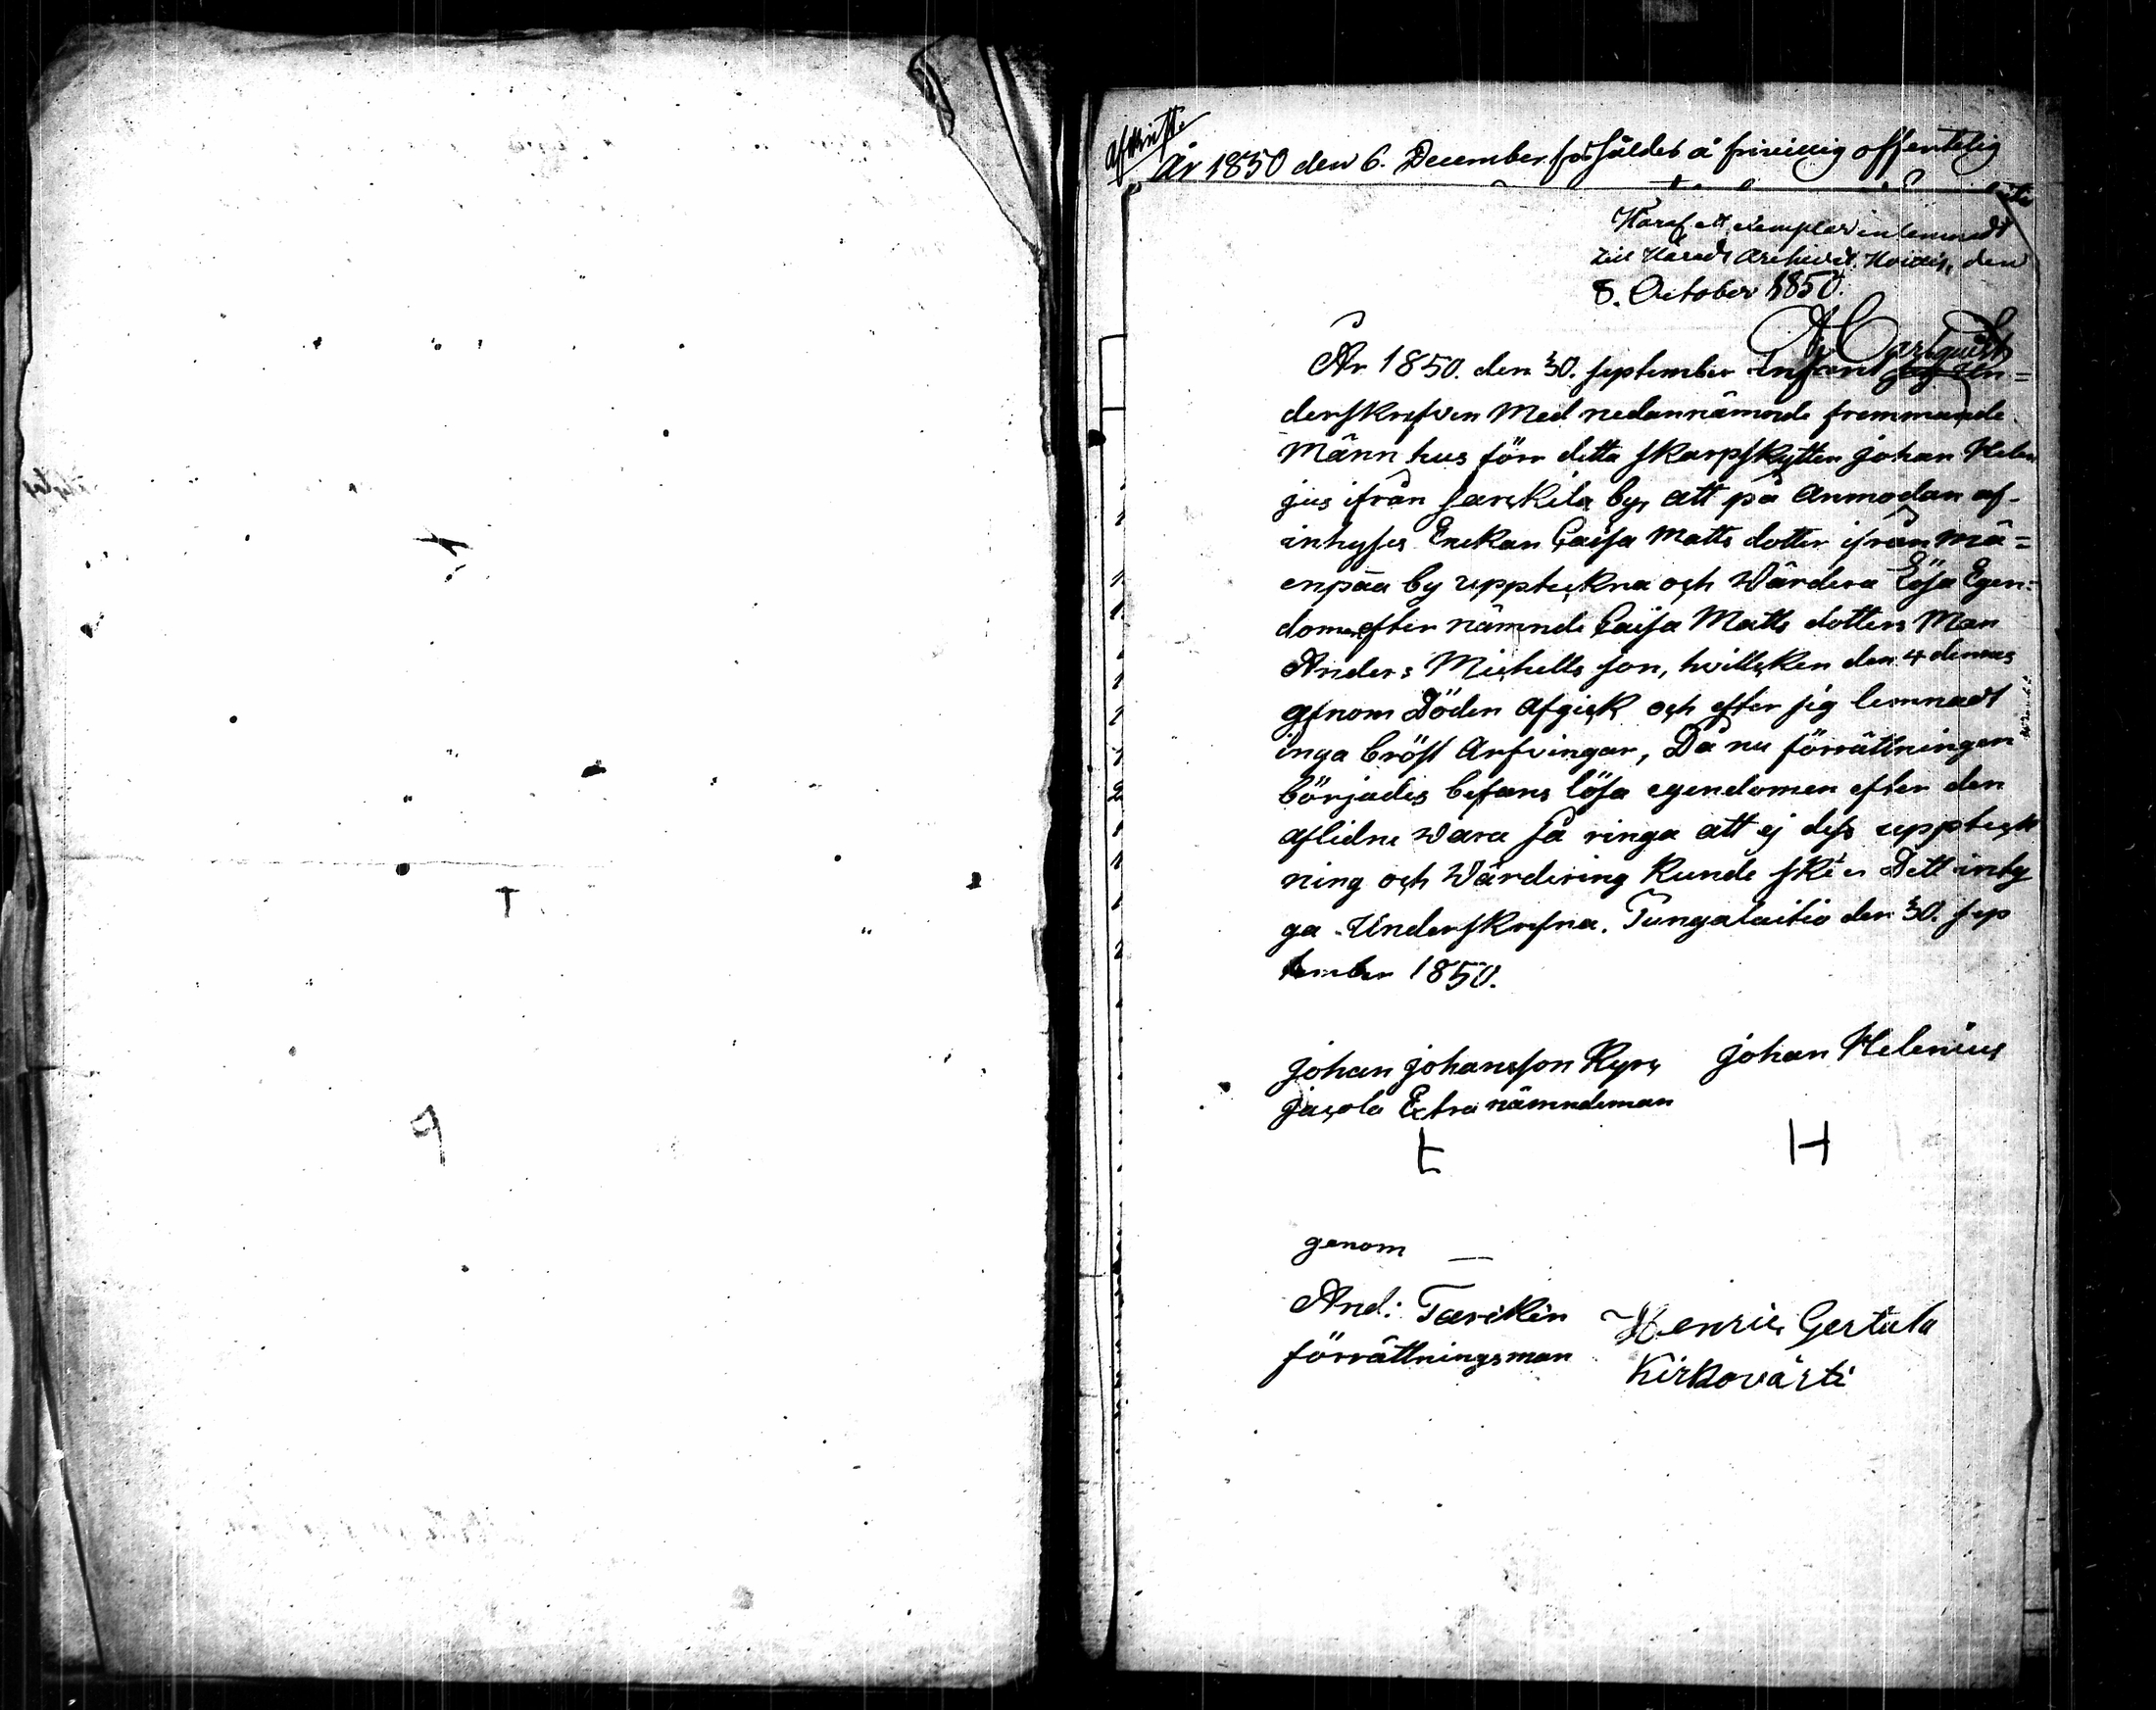 Afskrift.
År 1850 den 6. December försåldes å friwillig offentelig
Häraf ett exemplar inlemnadt
till Härads Archivet. Howdis, den
8. October 1850.
År 1850. den 30. september infant jag Un=
derskrefven Med nedannämnde fremmande
Männ hus förr detta skarpskytten johan Helen
jus ifrån Särkilä by, att på Anmodan af
inhyses Enckan Caisa Matts dotter ifrån Mä=
enpää by uppteckna och Wärdera Lösa Egen=
domen efter nämnde Caisa Matts dotters Man
Anders Michells son, hvillcken den 4 dennes
genom Döden afgick och efter sig lemnadt
inga bröst Arfvingar, Då nu förrättningen
börjades befans lösa egendomen efter den
aflidne wara så ringa att ej dess uppteck
ning och Wärdering kunde ske. Dett inty
ga Underskrefna. Tungalaitio den 30. sep
tember 1850.
johan johansson Kyrö johan Helenius
Extra nämndeman
H
genom
And: Tarcklin Henric Gertula
förrättningsman Kirkovärti